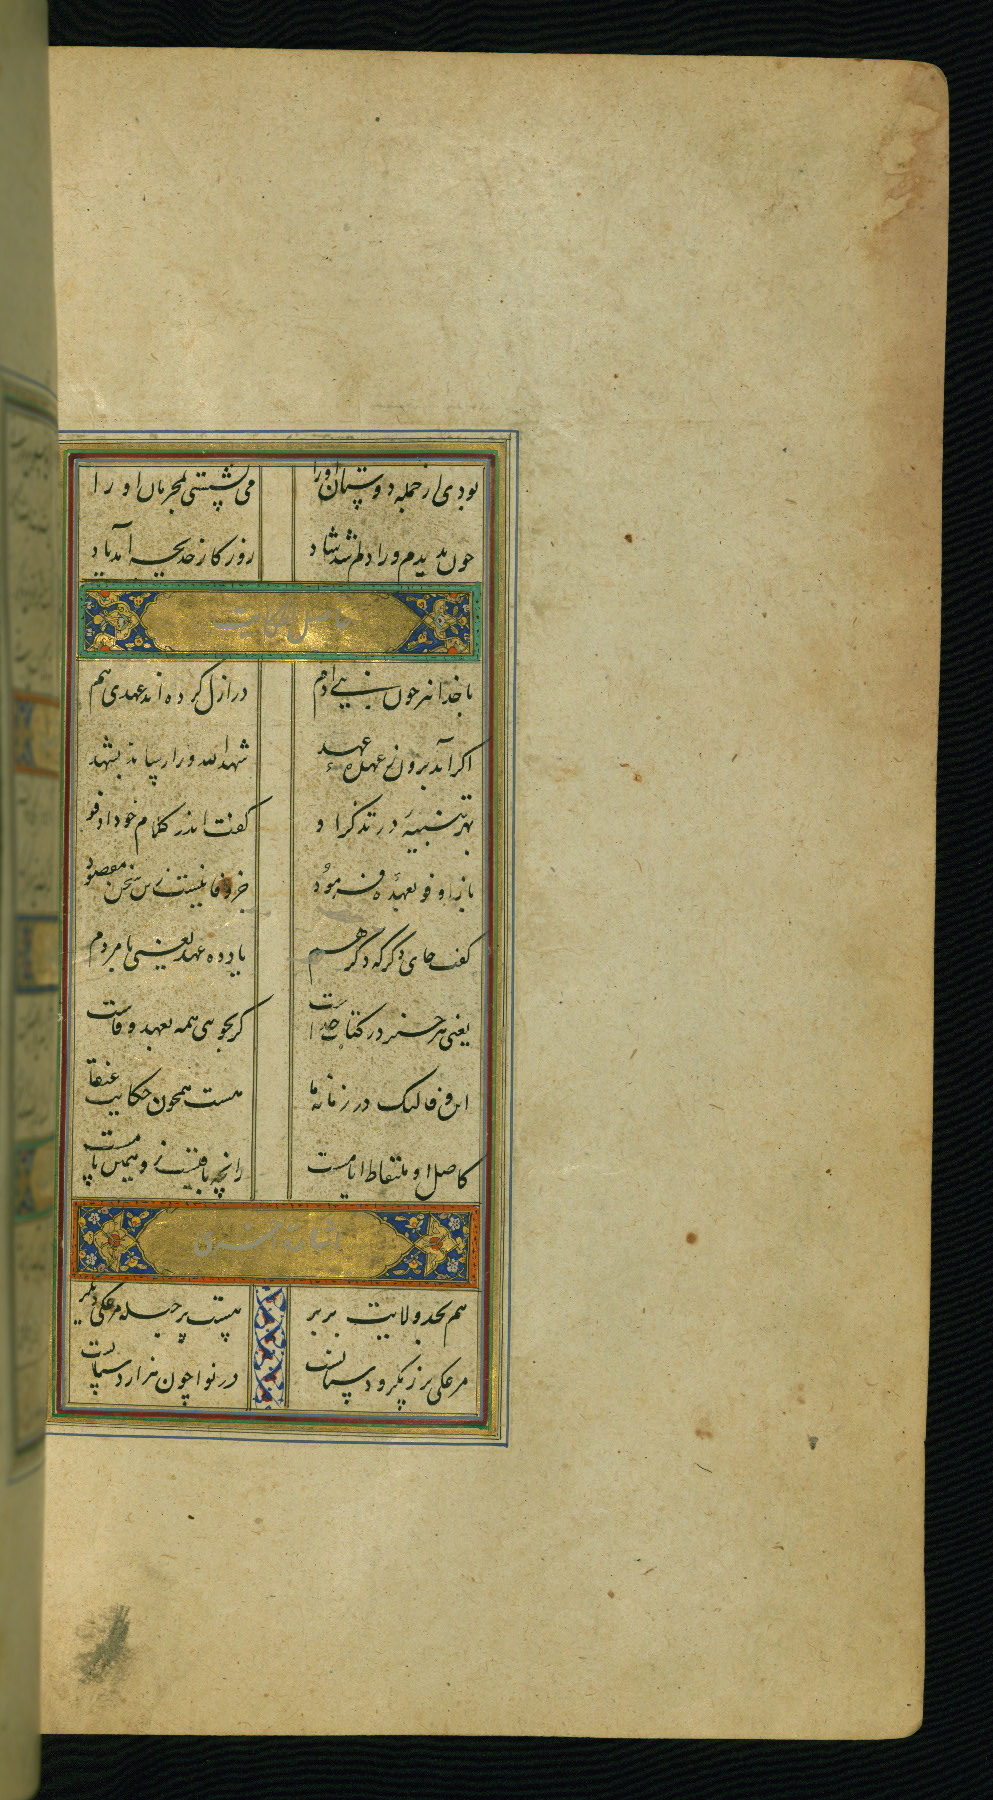 بودی از جمله دوستان او را می نشستی بمجریان او را
چون بدیدم ورا دلم شد شاد روزکار خدیجه آمد یاد
حاصل الحکایت
با خدا نیز چون بنی آدم در ازل کرده اند عهدی هم
اکر آید برون ز عهده عهد شهد الله ورا رساند بشهد
بهر تنبیه در تذکر او کفت اندر کلام خود اوفو
باز اوفو بعهده فرمود جز وفا نیست زین سخن مقصود
کفت جای دکر که دکر هم یاد ده عهد یعنی با مردم
یعنی هر چیز در کتاب خداست کر بجویی همه بعهد و وفاست
این وفا لیک در زمانه ما هست همچون حکایت عنقا
کاصل او ملتقاط انامست زانچه باقیست زو همین نامست
اشارت اخری
هم بحد ولایت بربر هست بر جبله مرغکی دیکر
مرغکی بر ز مکر و دستانست در نوا چون هزار دستانست